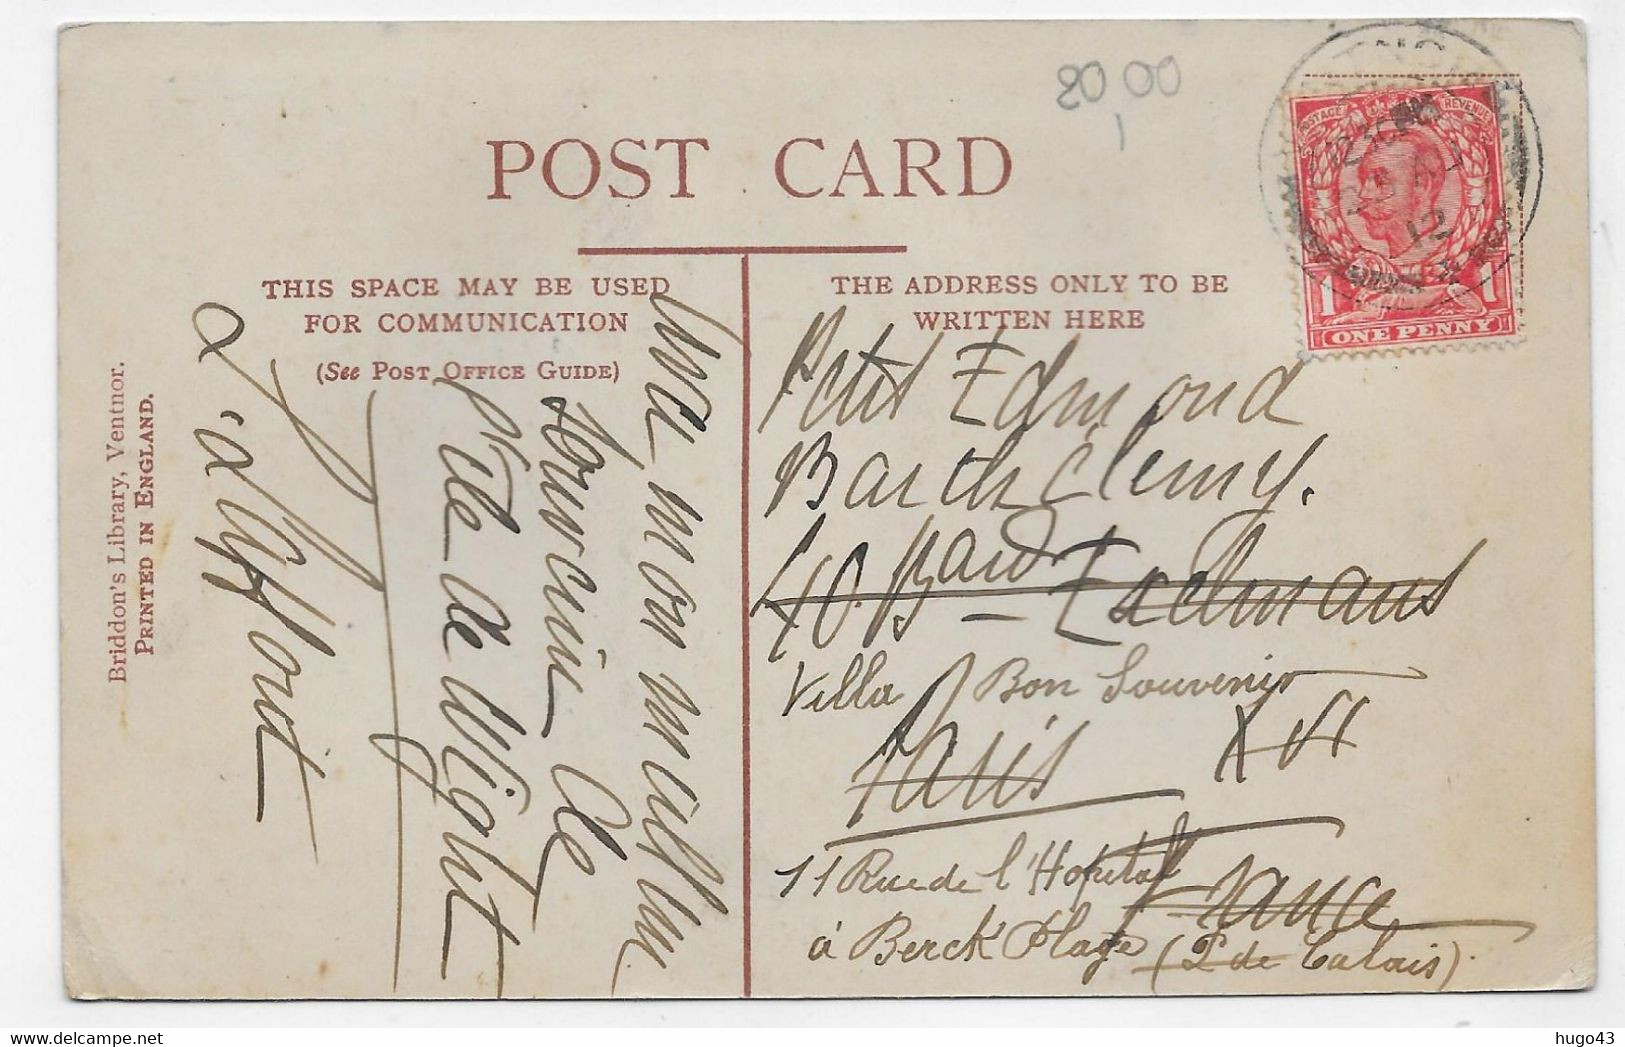 80 00
1
POST CARD
THIS SPACE MAY BE USED
FOR COMMUNICATION
(See Post Office Guide)
THE ADDRESS ONLY TO BE
WRITTEN HERE
Briddon's Library, Ventnor.
Printed in England.
POSTAGE REVENUE
12
1 1
ONE PENNY
mon meilleur
souvenir de
l'île de Wight
Petit Edmond
Barthélemy.
40. Bard Exelmans
Villa Bon Souvenir
Paris XVI
11 Rue de l'Hopital
France
à Berck Plage (P de Calais).
hugo43